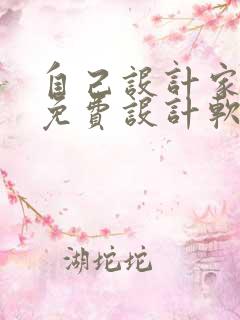 自己設計家
免費設計軟
湖坨坨